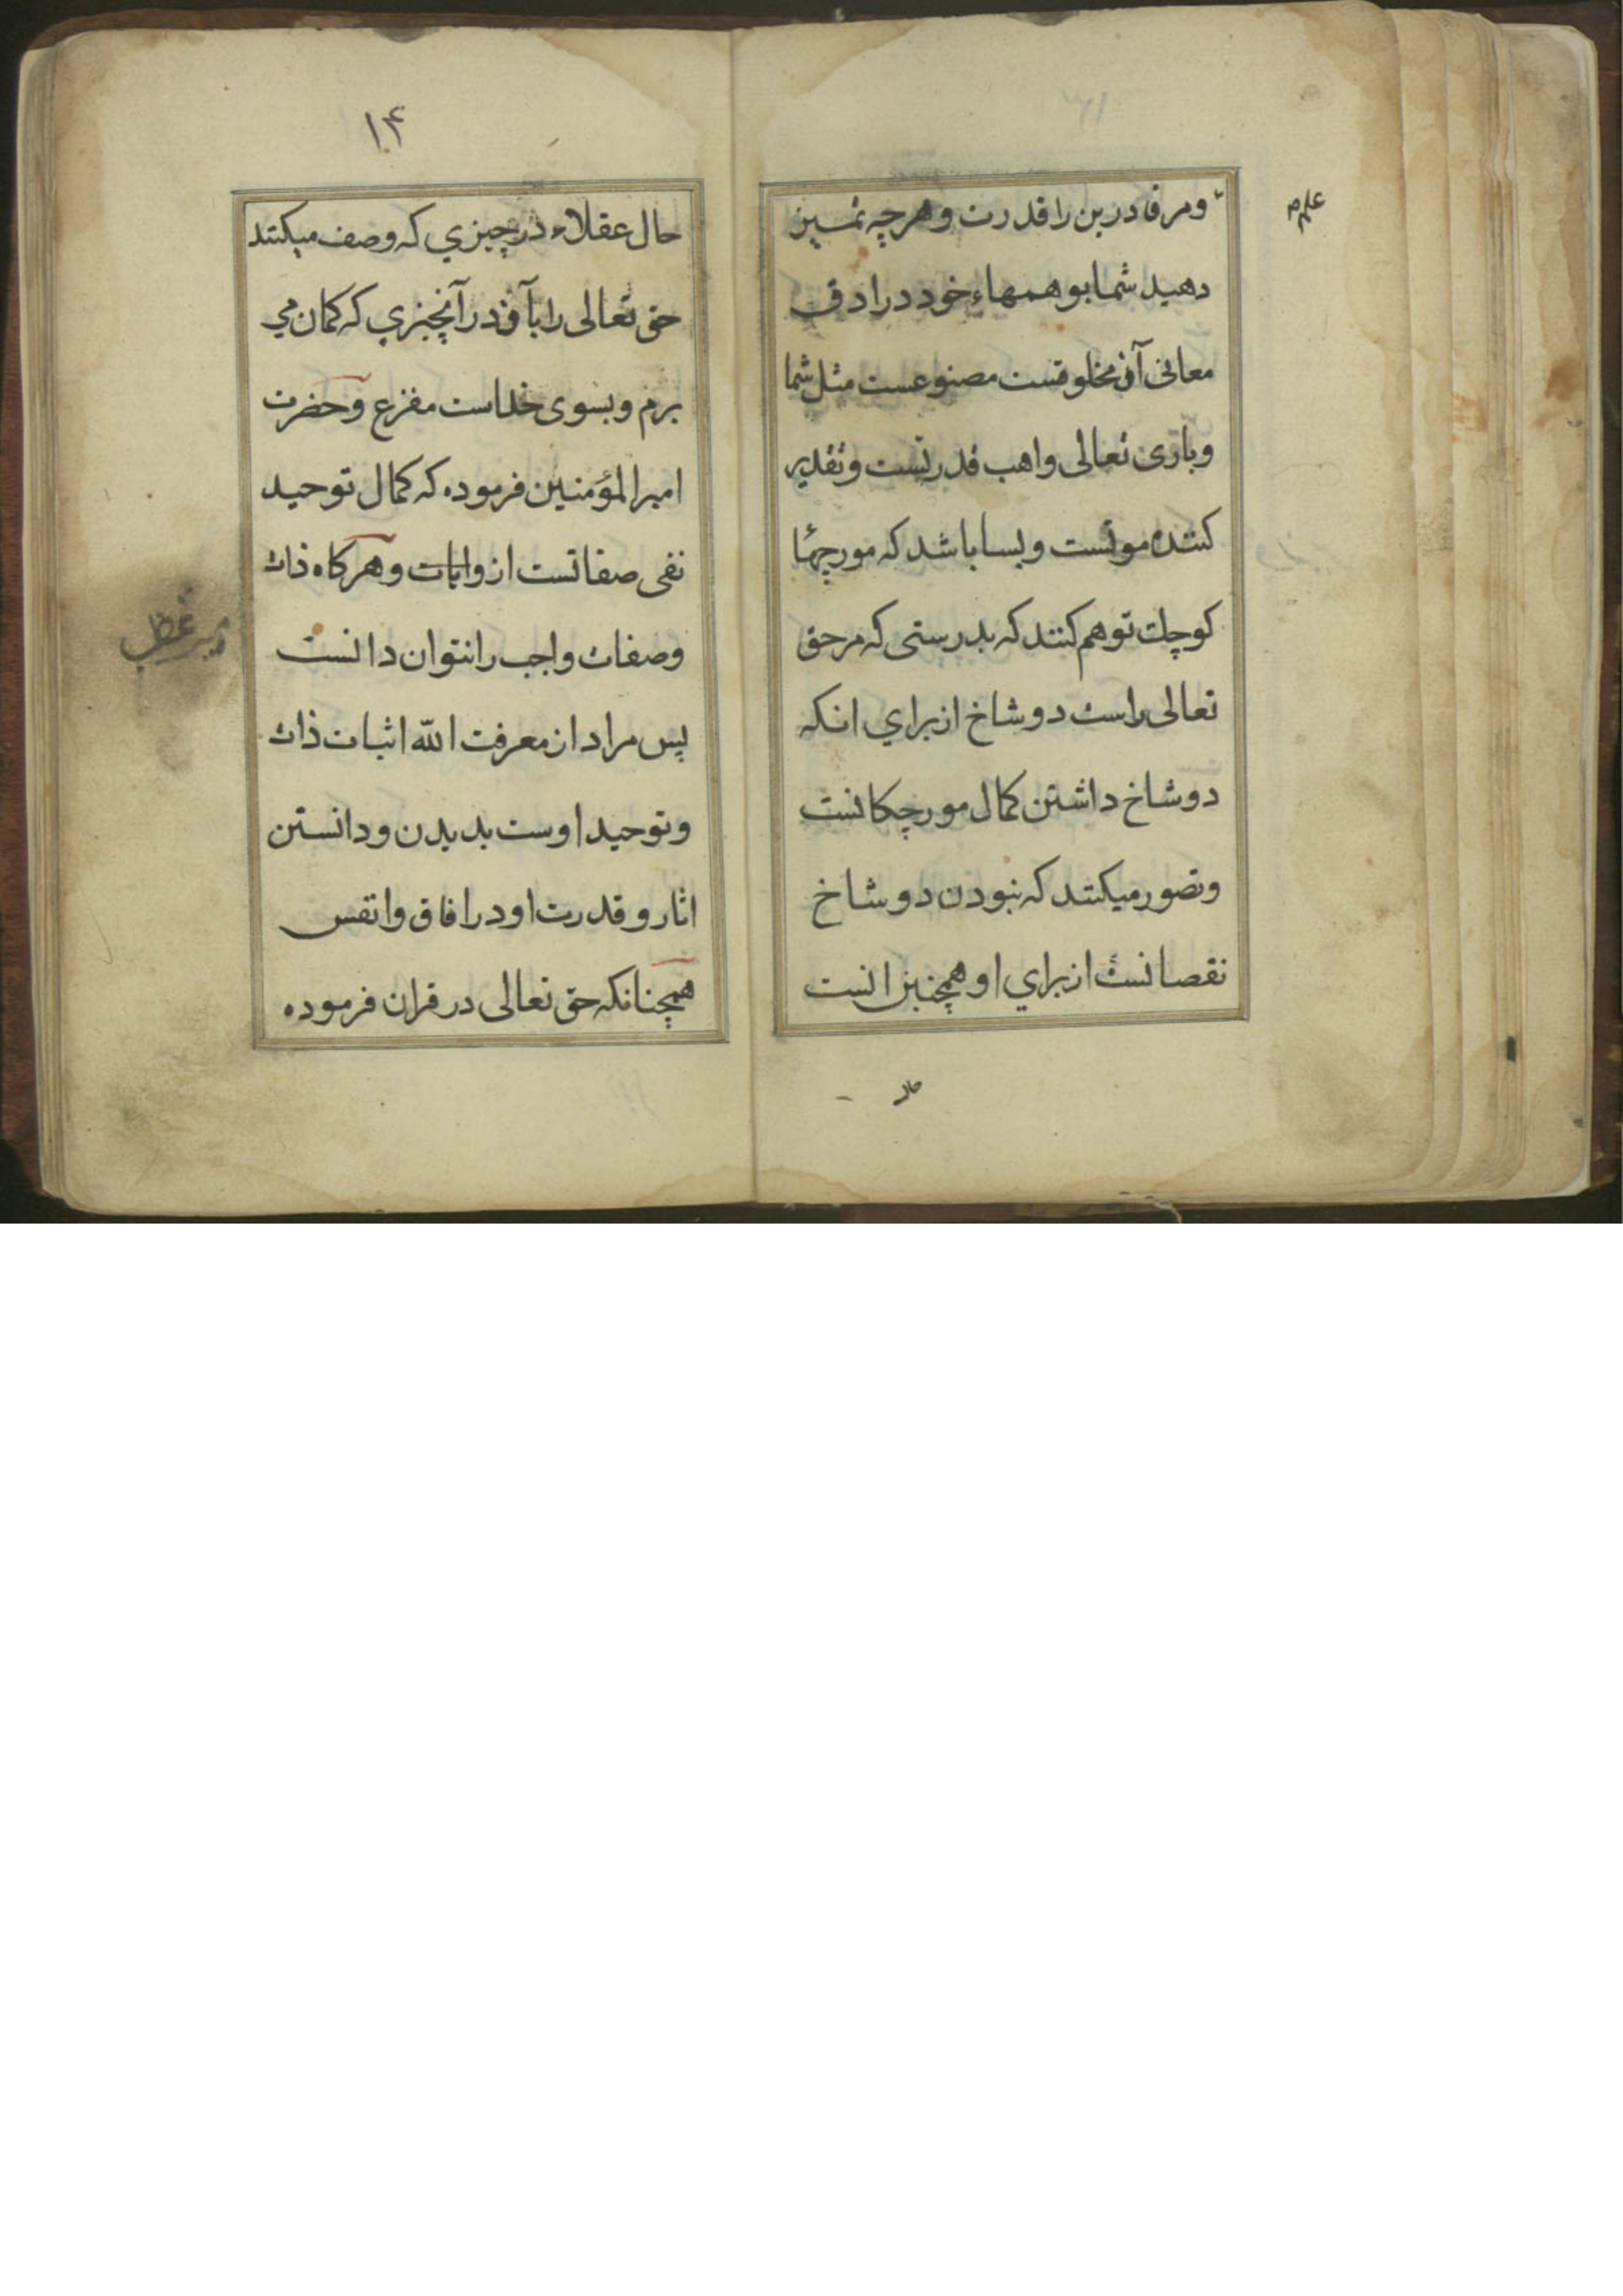 علم
ومر قادرین را قدرت و هرچه تمییز
دهید شما بوهمهاء خود در ادق
معانی آن مخلوقست مصنوعست مثل شما
و باری تعالی واهب قدرتست و تقدیر
کننده موتست و بسا باشد که مورچها
کوچك توهم کنند که بدرستی که مرحق
تعالی راست دو شاخ از برای انکه
دو شاخ داشتن کمال مورچکانست
و تصور میکنند که نبودن دو شاخ
نقصانست از برای او همچنین است
حال
۱۴
حال عقلاء در چیزی که وصف میکنند
حق تعالی را بآن در آنچیزی که کمان می
برم و بسوی خداست مفزع و حضرت
امیرالمؤمنین فرموده که کمال توحید
نفی صفاتست از و ابات و هرکاه ذات
و صفات واجب را نتوان دانست
پس مراد از معرفت الله اثبات ذات
و توحید اوست بدیدن و دانستن
اثار و قدرت او در افاق و انفس
همچنانکه حق تعالی در قران فرموده